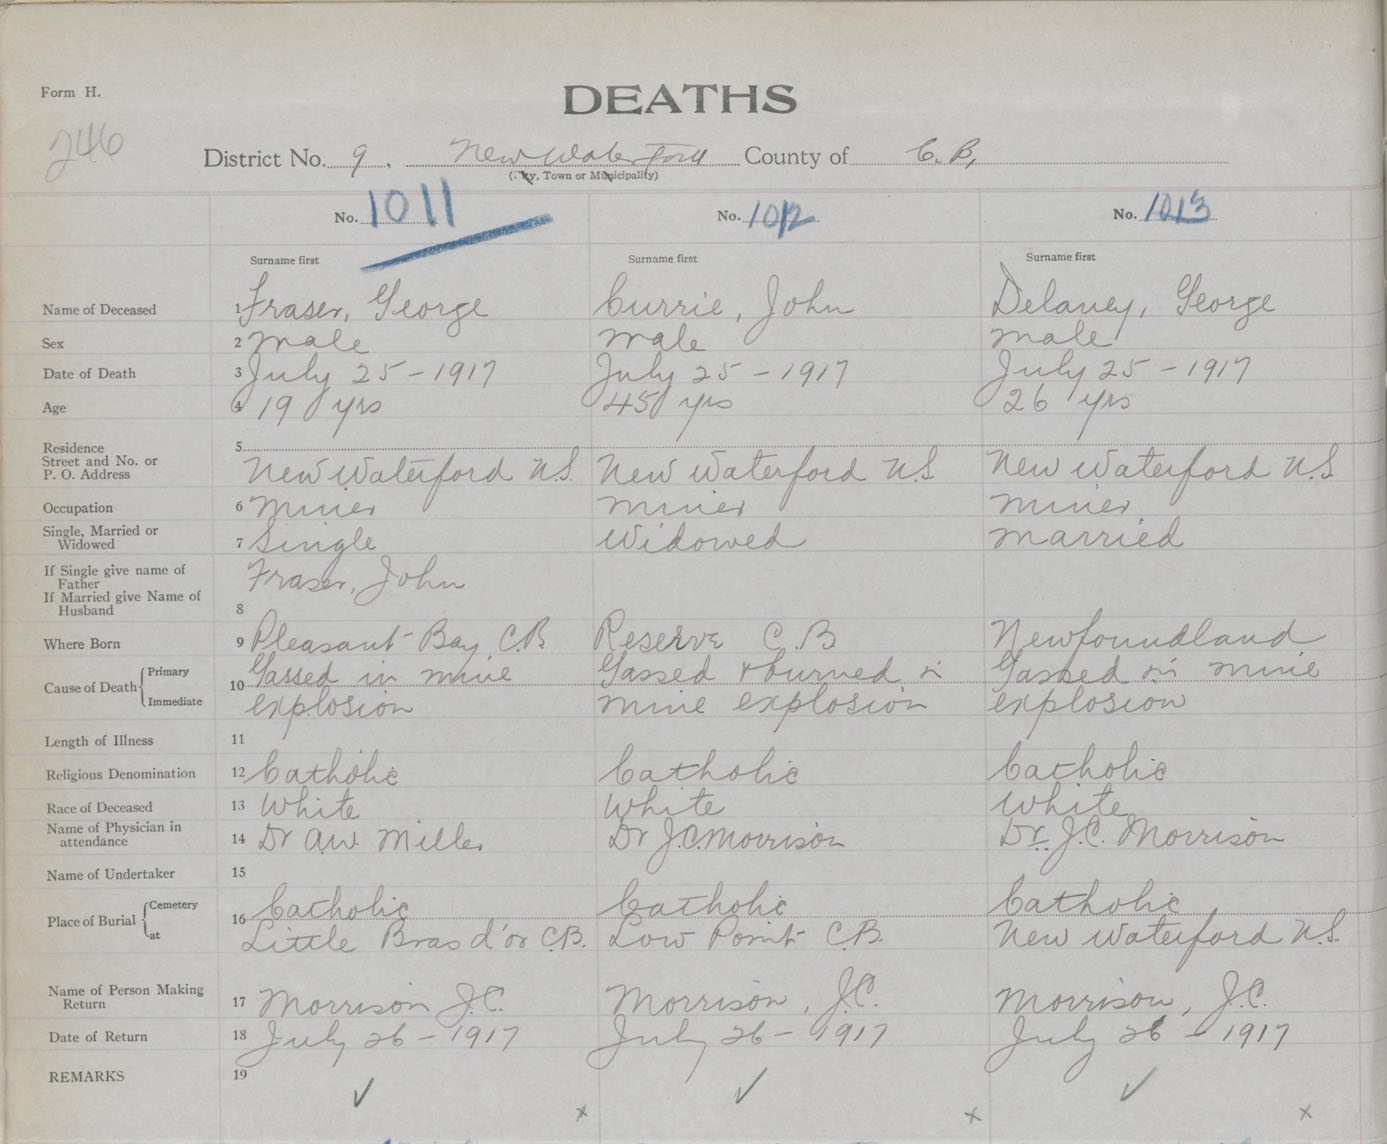 Form H.
DEATHS
246
District No. 9. New Waterford County of C. B.
(City, Town or Municipality)
No. 1011 No. 1012 No. 1013
Surname first Surname first Surname first
Name of Deceased 1 Fraser, George Currie, John Delaney, George
Sex 2 male male male
Date of Death 3 July 25 - 1917 July 25 - 1917 July 25 - 1917
Age 4 19 yrs 45 yrs 26 yrs
Residence 5
Street and No. or
P. O. Address New Waterford N.S. New Waterford N.S. New Waterford N.S.
Occupation 6 miner miner miner
Single, Married or
Widowed 7 Single Widowed married
If Single give name of
Father Fraser, John
If Married give Name of
Husband 8
Where Born 9 Pleasant Bay C.B. Reserve C.B Newfoundland
Cause of Death { Primary 10 Gassed in mine Gassed + burned in Gassed in mine
Immediate explosion mine explosion explosion
Length of Illness 11
Religious Denomination 12 Catholic Catholic Catholic
Race of Deceased 13 White White White
Name of Physician in
attendance 14 Dr A.W. Miller Dr J.C. Morrison Dr. J.C. Morrison
Name of Undertaker 15
Place of Burial { Cemetery 16 Catholic Catholic Catholic
at Little Bras d'or C.B. Low Point C.B. New Waterford N.S.
Name of Person Making
Return 17 Morrison J.C. Morrison, J.C. Morrison, J.C.
Date of Return 18 July 26 - 1917 July 26 - 1917 July 26 - 1917
REMARKS 19 ✓ ✓ ✓
x x x